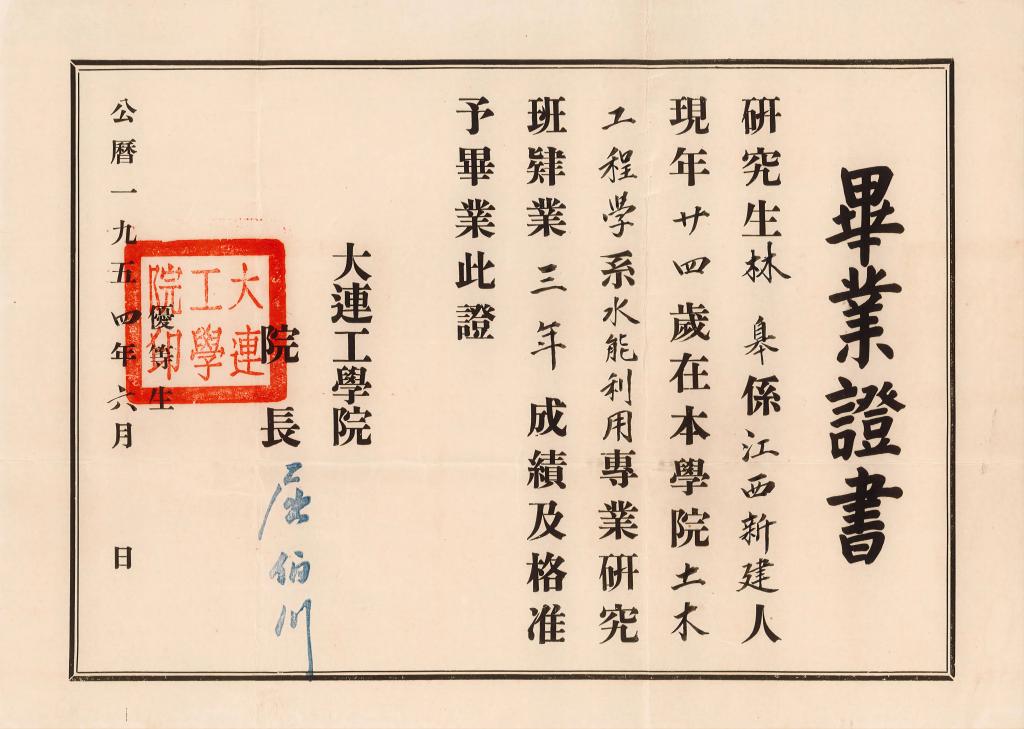 畢業證書
研究生林 皋係江西新建人
現年廿四歲在本學院土木
工程學系水能利用專業研究
班肄業三年成績及格准
予畢業此證
大連工學院
院長 屈伯川
大連工學院印
優等生
公曆一九五四年六月 日